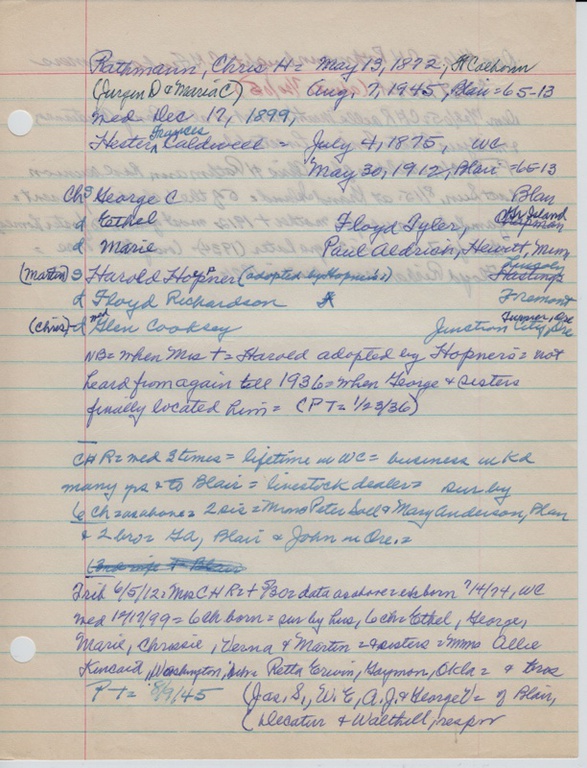 Rathmann, Chris H = May 13, 1872, Ft Calhoun
(Jurgen D & Maria C) Aug. 7, 1945, Blair = 65-13
med Dec 17, 1899,
Hester Frances Caldwell = July 4, 1875, WC
May 30, 1912, Blair = 65-13
Chs George C Blair
d Ethel Floyd Tyler, Gr Island
d Marie Paul Aldrich, Hewitt, Minn
(Martin) S Harold Hopner (adopted by Hopners) Lincoln Hastings
d Floyd Richardson Fremont
(Chris) d med Glen Cooksey Turner, Ore Junction City, Ore
NB = when Mrs + = Harold adopted by Hopners = not
heard from again till 1936 = when George & sisters
finally located him = (PT = 1/23/36)
CHR = med 2 times = lifetime in WC = business in Kd
many yrs & to Blair = livestock dealer = sur by
6 ch = as above = 2 sis = Mmes Peter & Mary Anderson,
& 2 bro = Gd, Blair & John in Ore. =
Trib 6/5/12 = Mrs CHR = + 5/30 = data as above = born 7/4/74, WC
med 12/17/99 = 6 ch born = sur by hus, 6 ch = Ethel, George,
Marie, Chrissie, Verna & Martin = sisters = Mmes Allie
Kincaid, Washington, Retta Erwin, Guymon, Okla = & bros
PT = 8/9/45 (Jas. S., W. E, A. J. & George = of Blair,
(Decatur & Walthill, respv